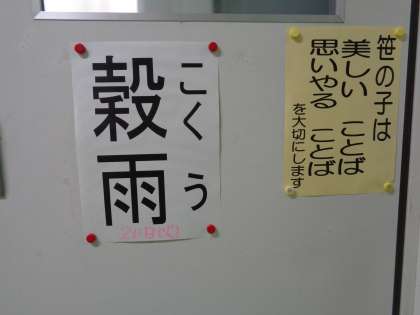 笹の子は
美しい ことば
思いやる ことば
を大切にします
こくう
穀雨